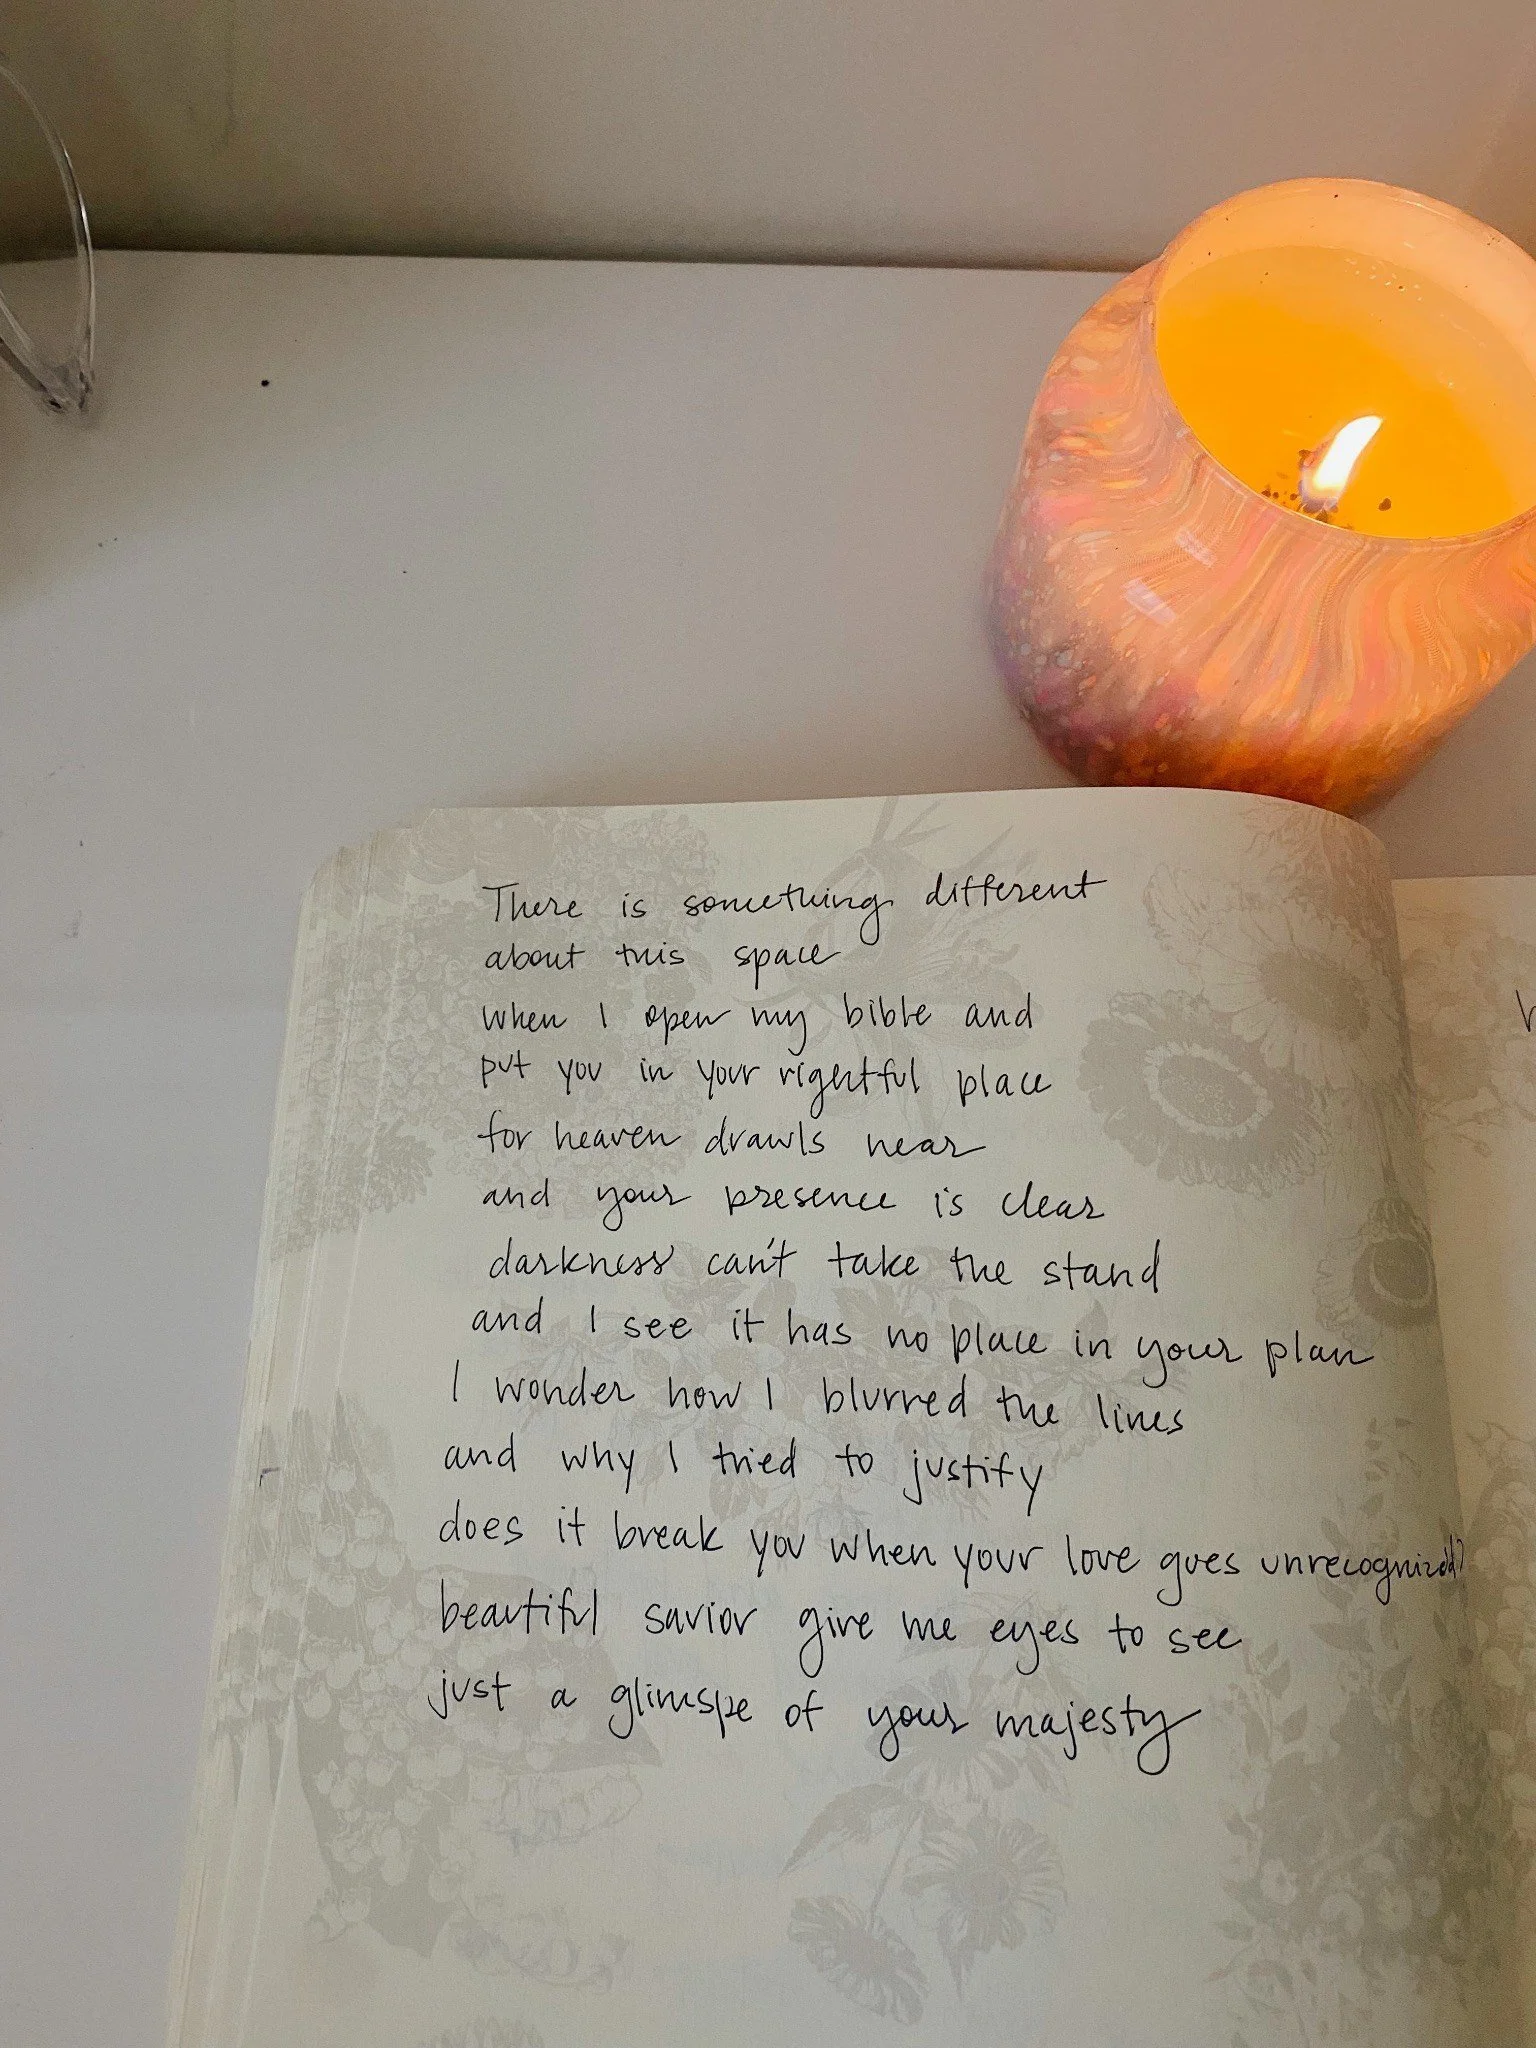 There is something different
about this space
when I open my bible and
put you in your rightful place
for heaven drawls near
and your presence is clear
darkness can't take the stand
and I see it has no place in your plan
I wonder how I blurred the lines
and why I tried to justify
does it break you when your love goes unrecognized?
beautiful savior give me eyes to see
just a glimspe of your majesty